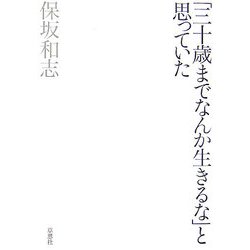 「三十歳までなんか生きるな」と
思っていた
保坂和志
草思社